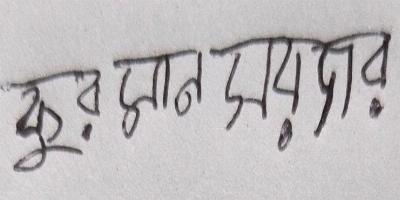 কুরমান সরদার